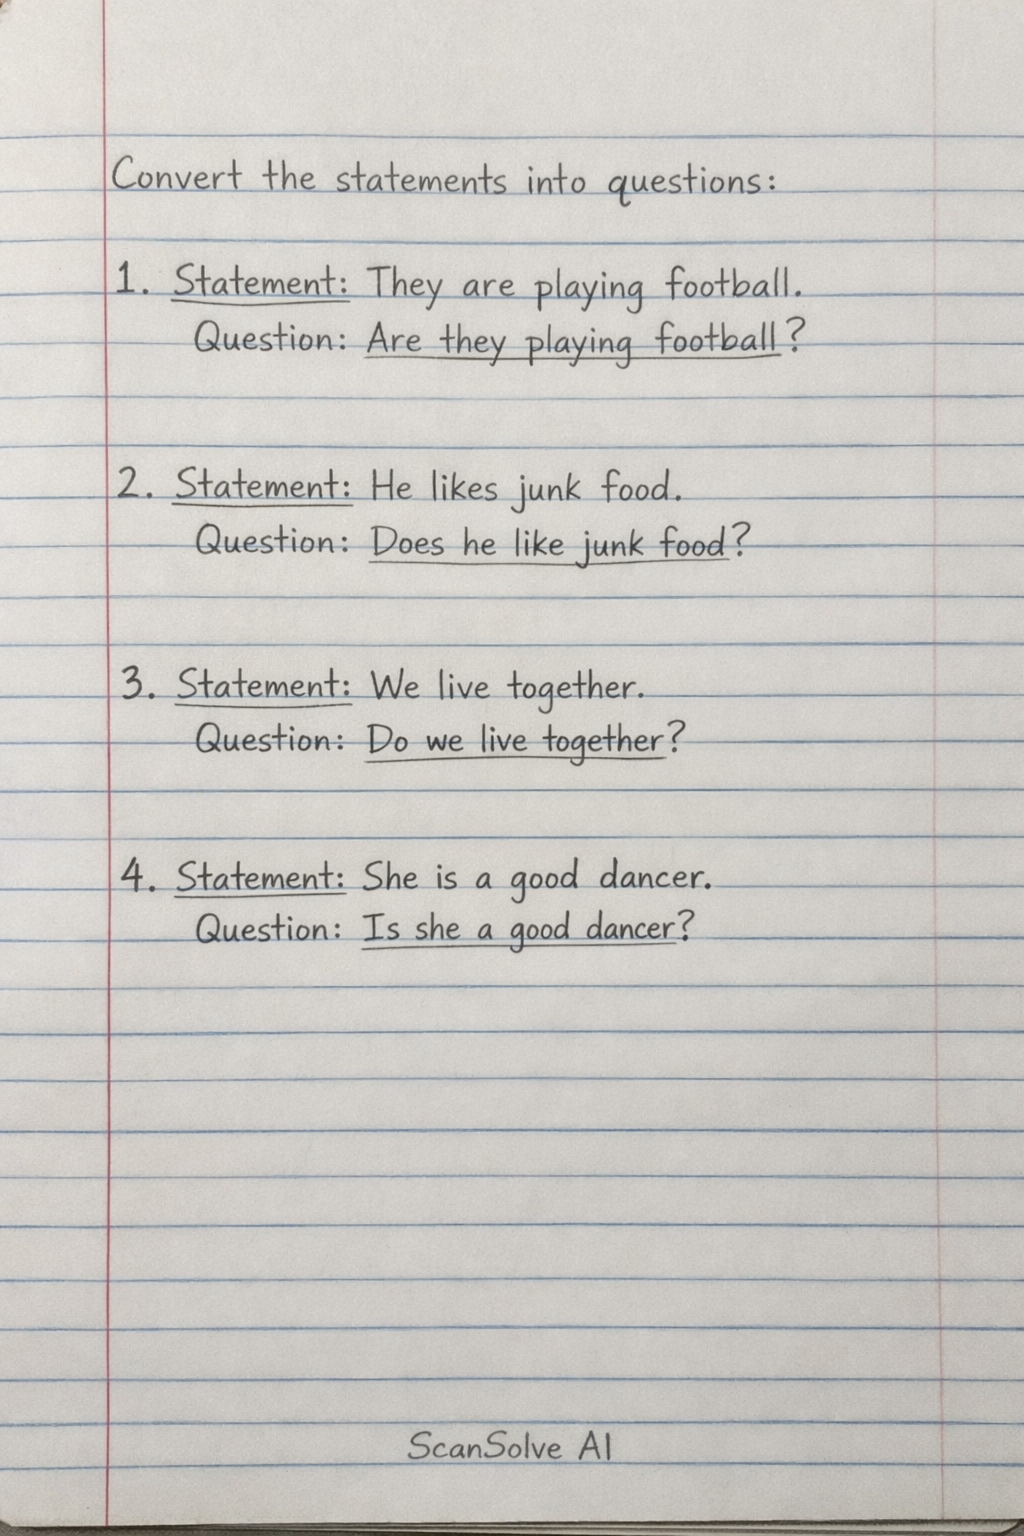 Convert the statements into questions:
1. Statement: They are playing football.
Question: Are they playing football?
2. Statement: He likes junk food.
Question: Does he like junk food?
3. Statement: We live together.
Question: Do we live together?
4. Statement: She is a good dancer.
Question: Is she a good dancer?
ScanSolve AI